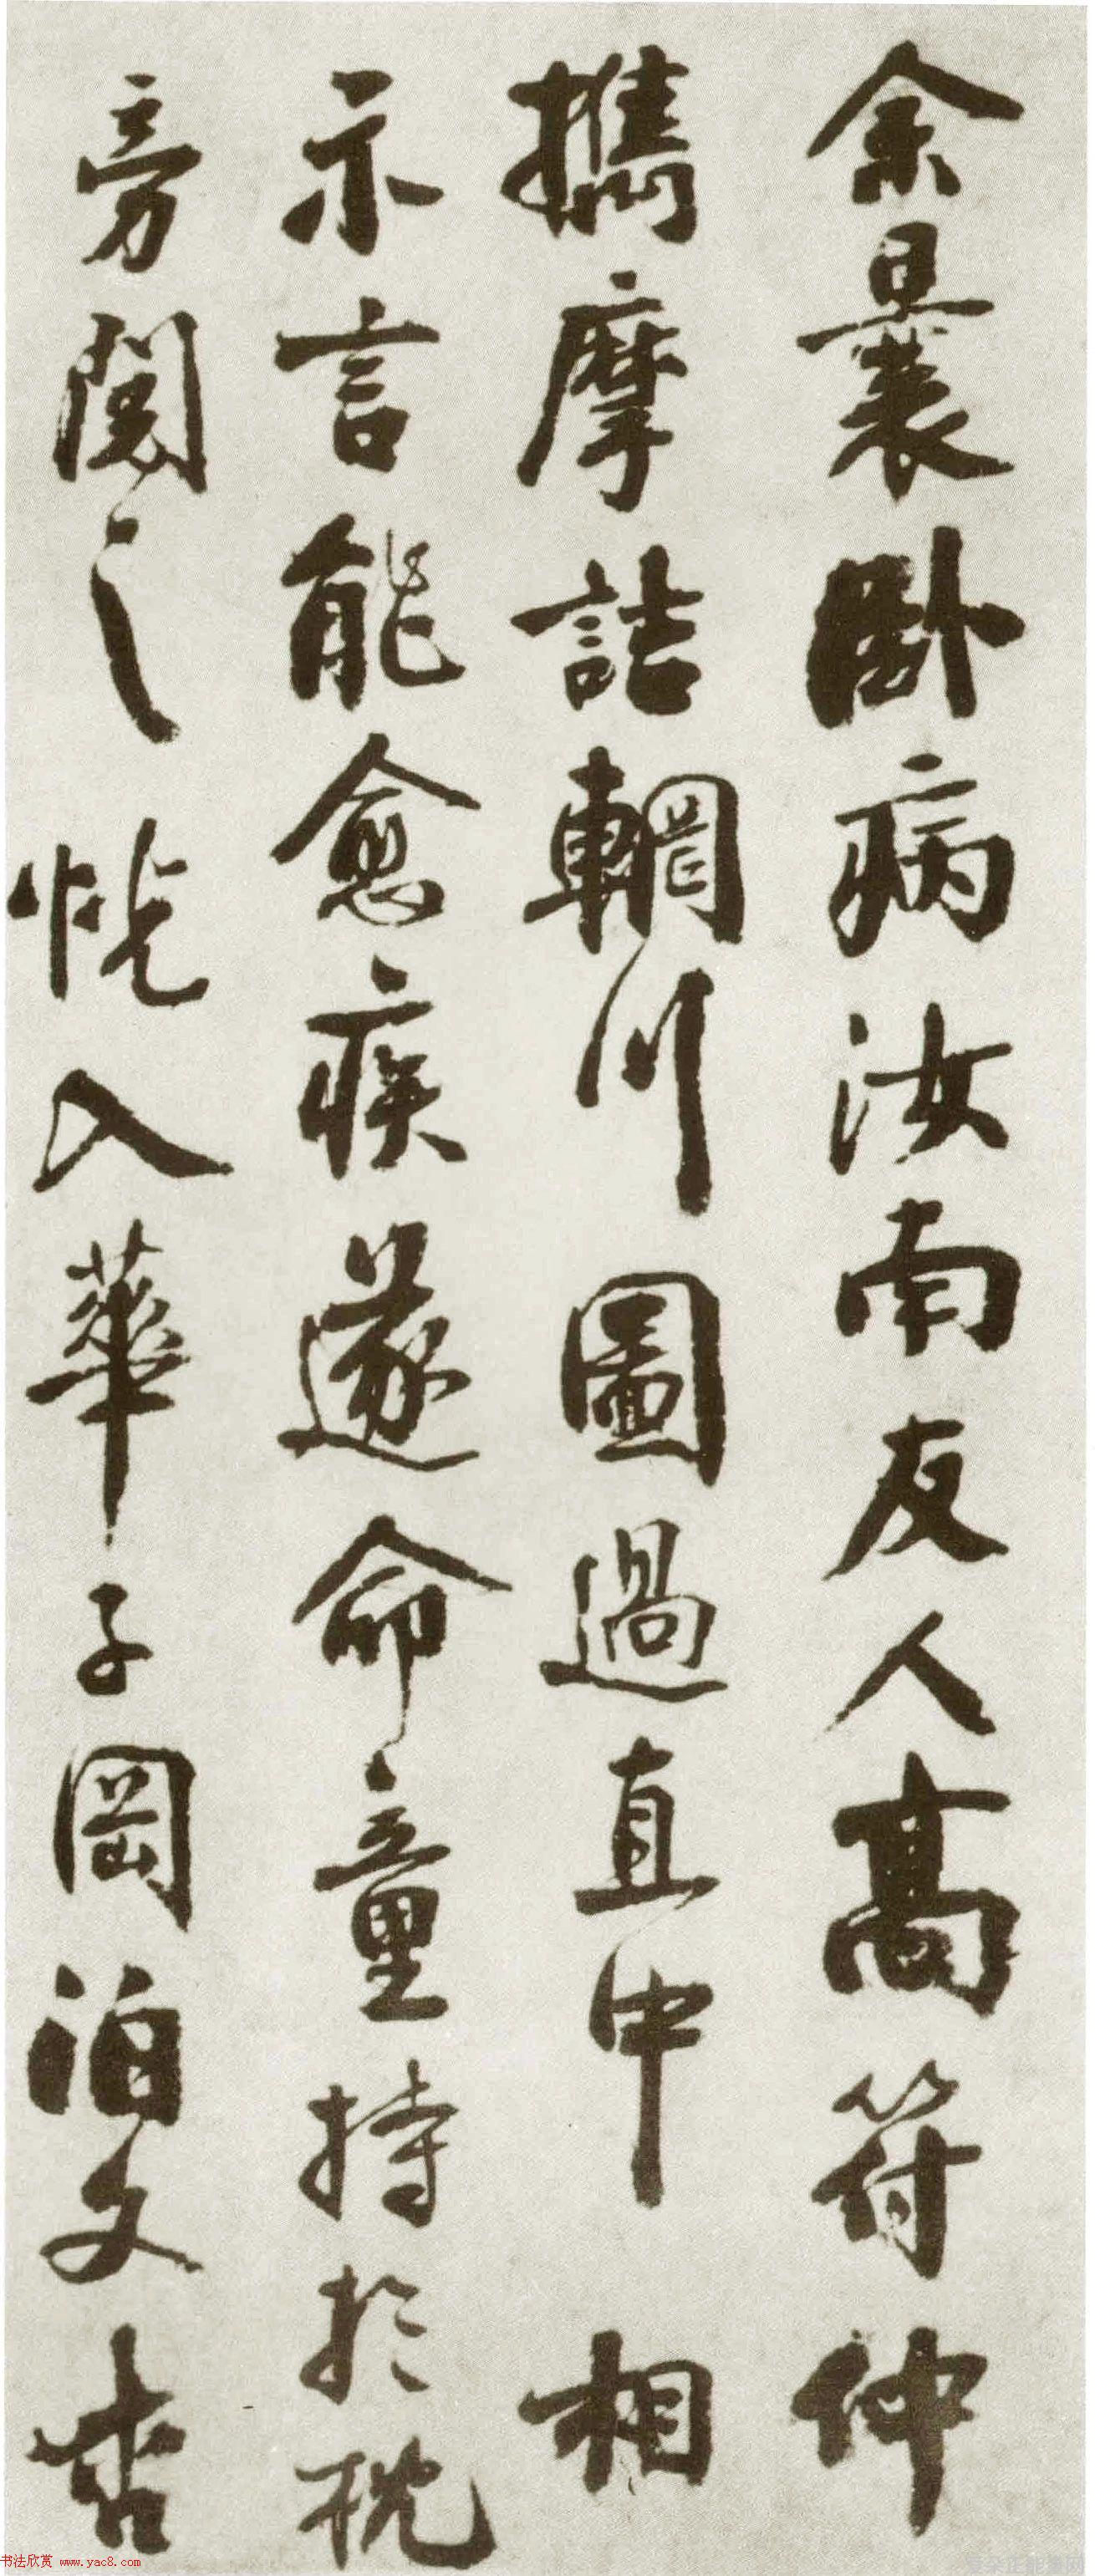 余曩卧病汝南友人高符仲
攜摩詰輞川圖過直中相
示言能愈疾遂命童持於枕
旁閱之恍入華子岡泊文杏
书法欣赏 www.yac8.com